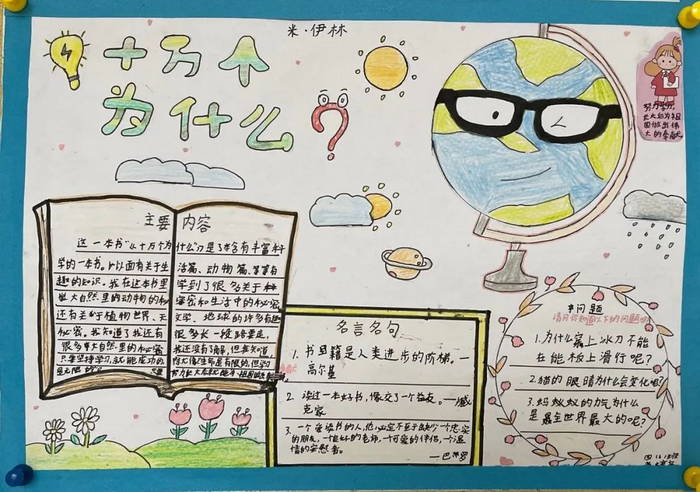 米·伊林
十万个
为什么?
努力学习,
长大后为祖
国做出伟
大的贡献
主要内容
这一本书《十万个为什么》是一本含有丰富科
学的一本书。
趣的知识。我在这本书里学到了很多关于
大自然里的动物的秘密和生活中的秘密
还有关于植物世界、天文学、地球的许多有趣
秘密。我知道了我还有很多长一段路要走,
很多事大自然里的小秘密我还没有了解,但我知道,
只要坚持学习,就能成功的
名言名句
1. 书籍是人类进步的阶梯。—
高尔基
2. 读过一本好书,像交了个益友。—臧
克家
3. 一个爱读书的人,他必定不至于缺少一个忠实
的朋友,一个良好的老师,一个可爱的伴侣,一个温
情的安慰者。
—巴罗
问题
请问你知道以下的问题吗
1. 为什么穿上冰刀不能
在地板上滑行呢?
2. 猫的眼睛为什么会变化呢?
3. 蚂蚁的力气为什么
是世界最大的呢?